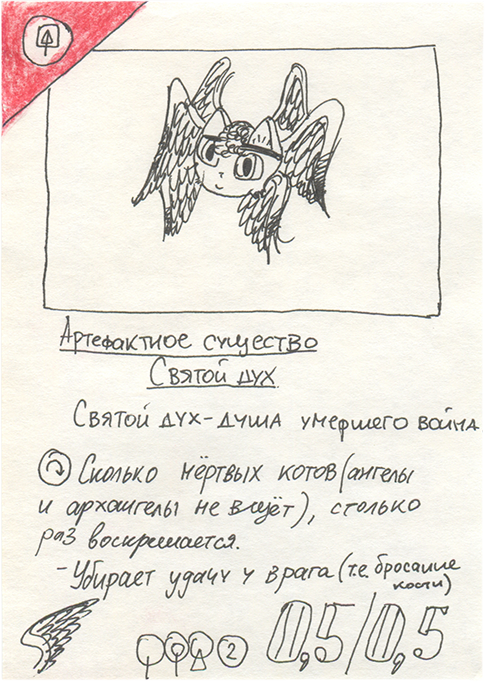 Артефактное существо
Святой дух
Святой дух-душа умершего война
Сколько мёртвых котов (ангелы
и архангелы не в щёт), столько
раз воскрешается.
-Убирает удачу у врага (т.е. бросание
кости)
2 0,5/0,5